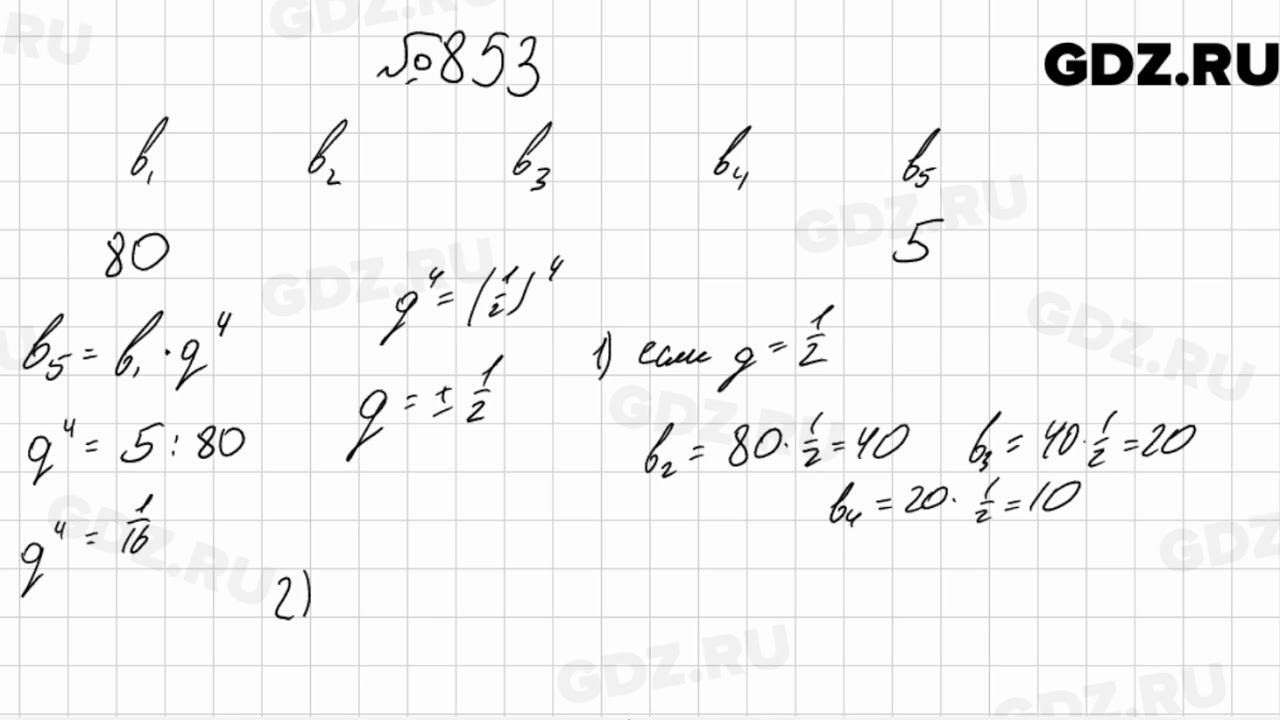 GDZ.RU
№853
b₁ b₂ b₃ b₄ b₅
80 5
b₅ = b₁ · q⁴
q⁴ = 5 : 80
q⁴ = 1/16
q⁴ = (1/2)⁴
q = ± 1/2
1) если q = 1/2
b₂ = 80 · 1/2 = 40 b₃ = 40 · 1/2 = 20
b₄ = 20 · 1/2 = 10
2)